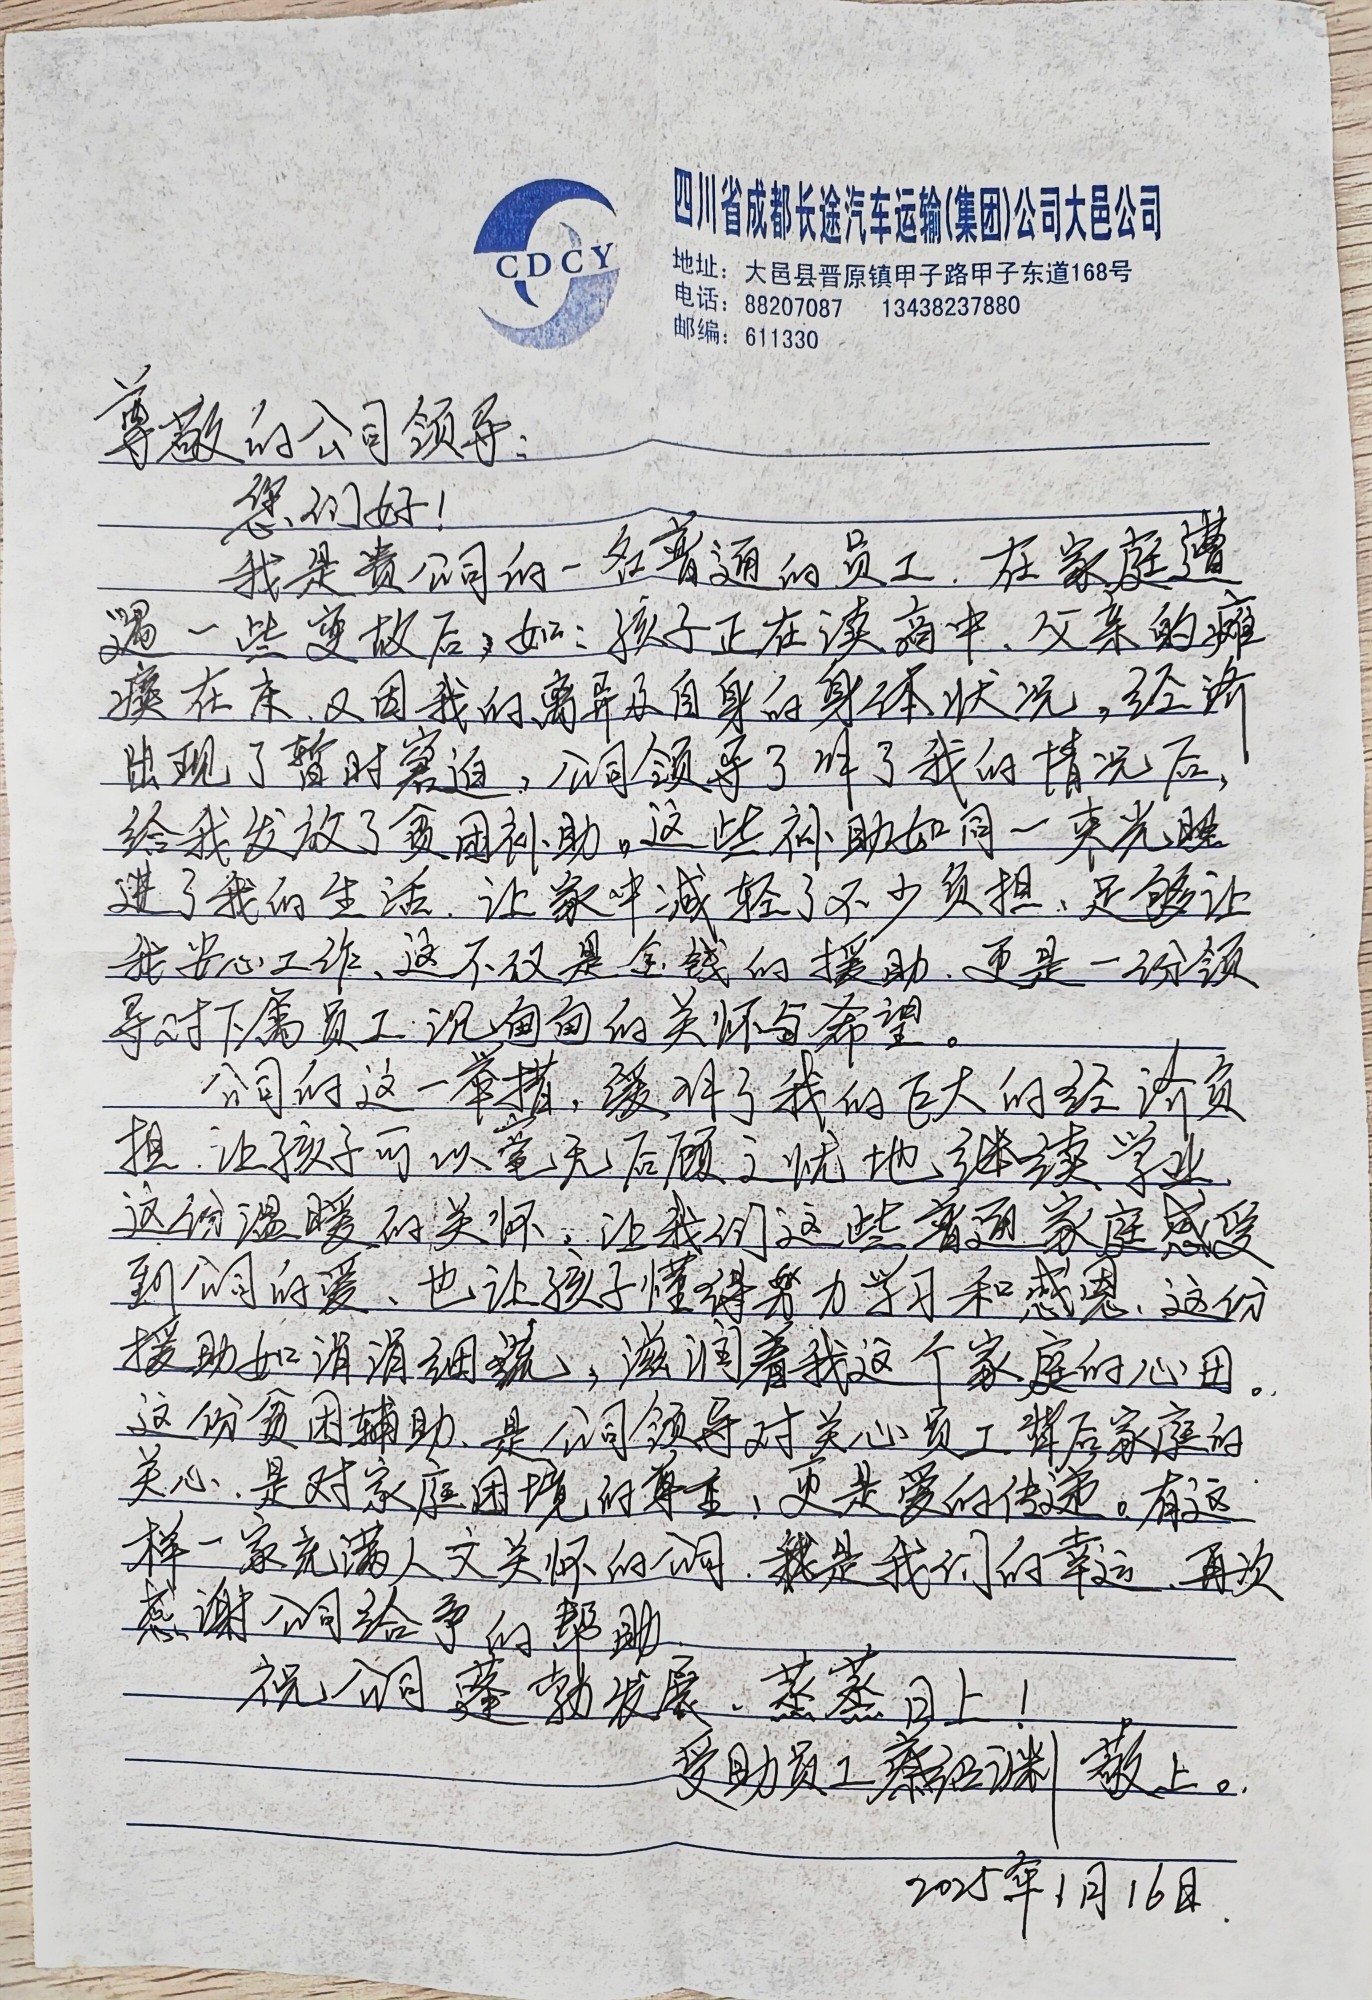 CDCY
四川省成都长途汽车运输(集团)公司大邑公司
地址：大邑县晋原镇甲子路甲子东道168号
电话：88207087 13438237880
邮编：611330
尊敬的公司领导：
您们好！
我是贵公司的一名普通的员工，在家庭遭
遇一些变故后，如：孩子正在读高中、父亲的瘫
痪在床、又因我的离异及自身的身体状况，经济
出现了暂时窘迫，公司领导了解了我的情况后，
给我发放了贫困补助。这些补助如同一束光照
进了我的生活，让家中减轻了不少负担，足够让
我安心工作、这不仅是金钱的援助，更是一份领
导对下属员工沉甸甸的关怀与希望。
公司的这一举措，缓解了我的巨大的经济负
担，让孩子可以毫无后顾之忧地继续学业
这份温暖的关怀，让我们这些普通家庭感受
到公司的爱、也让孩子懂得努力学习和感恩，这份
援助如涓涓细流，滋润着我这个家庭的心田。
这份贫困辅助、是公司领导对关心员工背后家庭的
关心，是对家庭困境的尊重，更是爱的传递。有这
样一家充满人文关怀的公司，就是我们的幸运，再次
感谢公司给予的帮助.
祝公司蓬勃发展，蒸蒸日上！
受助员工 敬上。
2025年1月16日.